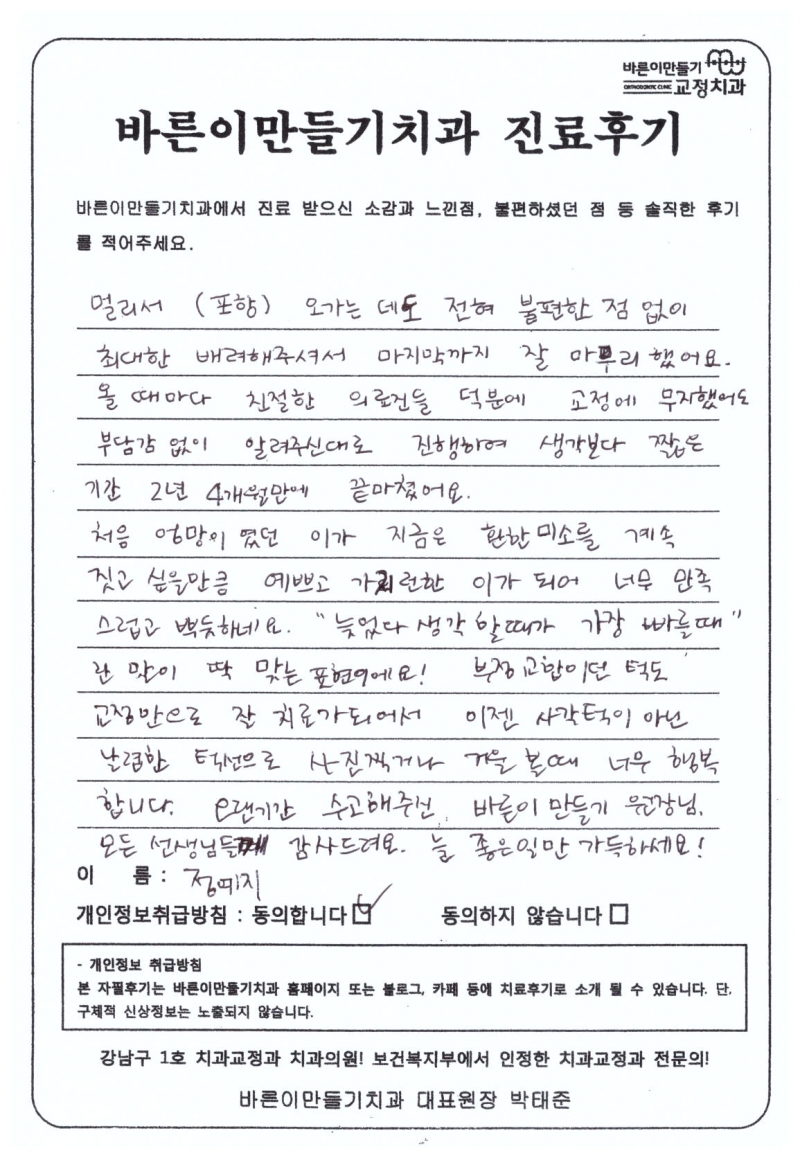 바른이만들기
ORTHODONTIC CLINIC 교정치과
바른이만들기치과 진료후기
바른이만들기치과에서 진료 받으신 소감과 느낀점, 불편하셨던 점 등 솔직한 후기
를 적어주세요.
멀리서 (포항) 오가는 데도 전혀 불편한 점 없이
최대한 배려해주셔서 마지막까지 잘 마무리 했어요.
올 때마다 친절한 의료진들 덕분에 교정에 무지했어도
부담감 없이 알려주신대로 진행하여 생각보다 짧은
기간 2년 4개월만에 끝마쳤어요.
처음 엉망이였던 이가 지금은 환한 미소를 계속
짓고 싶을만큼 예쁘고 가지런한 이가 되어 너무 만족
스럽고 뿌듯하네요. "늦었다 생각 할때가 가장 빠를때"
란 말이 딱 맞는 표현이에요! 부정교합이던 턱도
교정만으로 잘 치료가되어서 이젠 사각턱이 아닌
날렵한 턱선으로 사진찍거나 거울 볼때 너무 행복
합니다. 오랜기간 수고해주신 바른이 만들기 원장님,
모든 선생님들께 감사드려요. 늘 좋은일만 가득하세요!
이 름 : 정예지
개인정보취급방침 : 동의합니다 ☑ 동의하지 않습니다 ☐
- 개인정보 취급방침
본 자필후기는 바른이만들기치과 홈페이지 또는 블로그, 카페 등에 치료후기로 소개 될 수 있습니다. 단,
구체적 신상정보는 노출되지 않습니다.
강남구 1호 치과교정과 치과의원! 보건복지부에서 인정한 치과교정과 전문의!
바른이만들기치과 대표원장 박태준